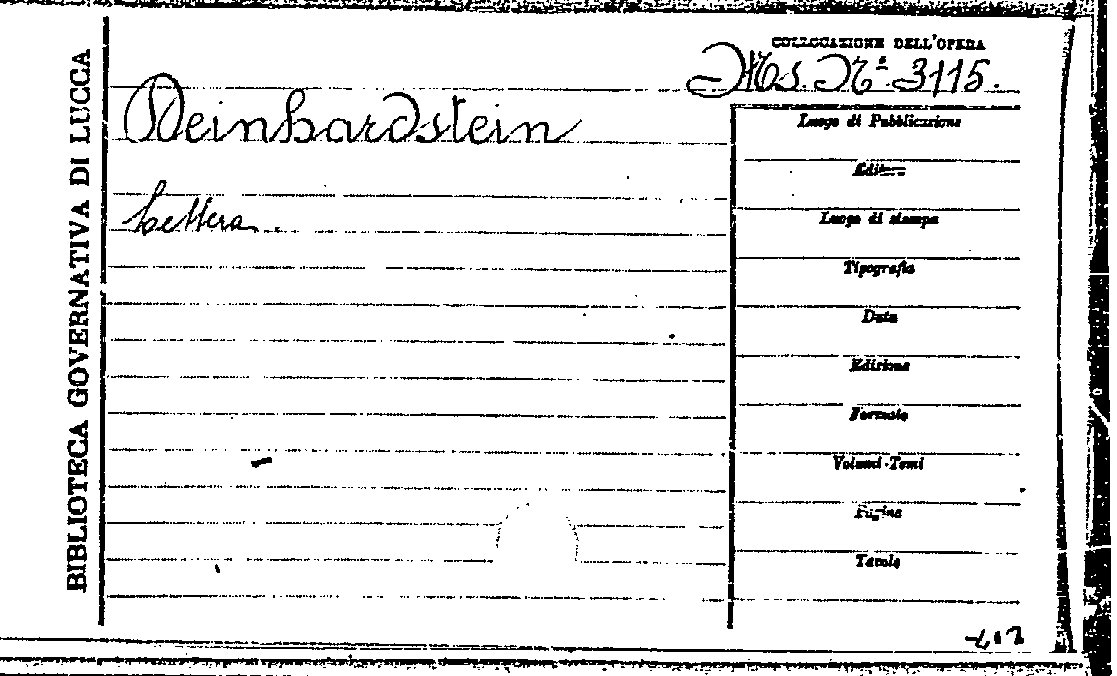 BIBLIOTECA GOVERNATIVA DI LUCCA
COLLOCAZIONE DELL'OPERA
Ms. N.º 3115.
Deinhardstein
Lettera.
Luogo di Pubblicazione
Editore
Luogo di stampa
Tipografia
Data
Edizione
Formato
Volumi-Tomi
Pagine
Tavole